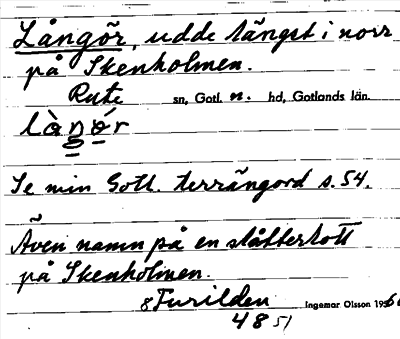 Långör, udde längst i norr
på Skenholmen.
Rute sn, Gotl. n. hd, Gotlands län.
Se min Gotl. terrängord s. 54.
Även namn på en slåtterlott
på Skenholmen.
Furilden Ingemar Olsson
48 51